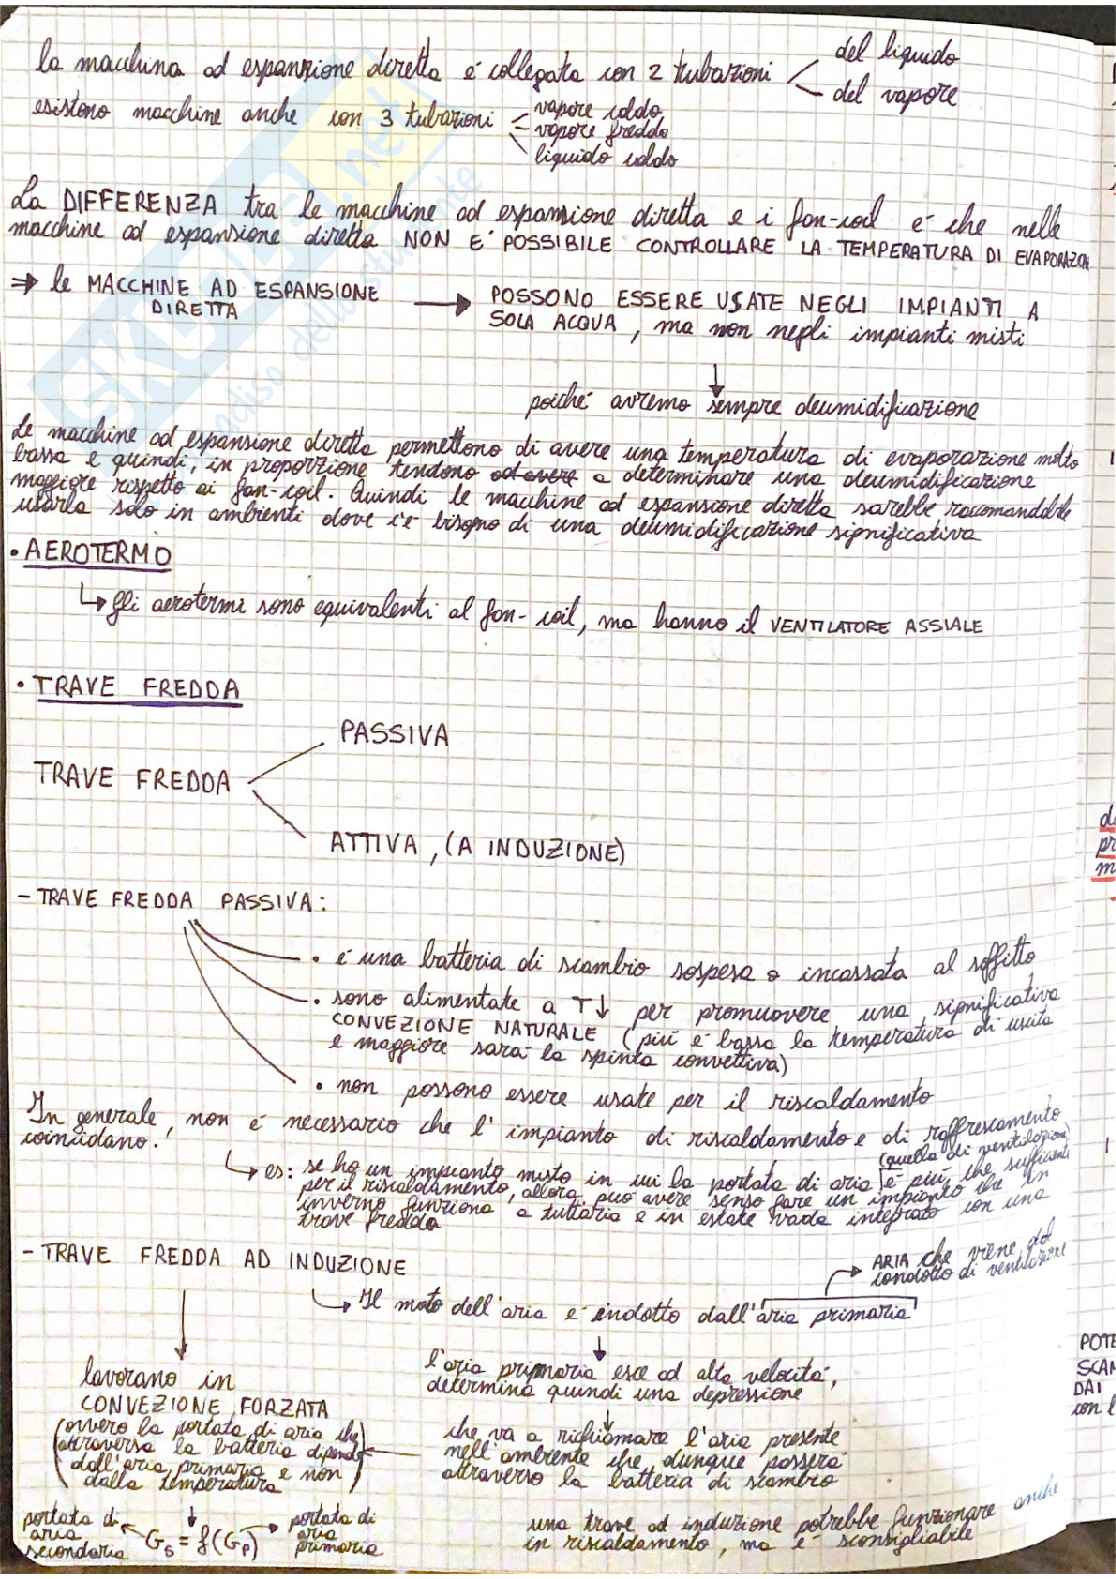 la macchina ad espansione diretta é collegata con 2 tubazioni
del liquido
del vapore
esistono macchine anche con 3 tubazioni
vapore caldo
vapore freddo
liquido caldo
La DIFFERENZA tra le macchine ad espansione diretta e i fan-coil é che nelle
macchine ad espansione diretta NON E' POSSIBILE CONTROLLARE LA TEMPERATURA DI EVAPORAZION
⇒ le MACCHINE AD ESPANSIONE
DIRETTA
→ POSSONO ESSERE USATE NEGLI IMPIANTI A
SOLA ACQUA, ma non negli impianti misti
↓
poiché avremo sempre deumidificazione
Le macchine ad espansione diretta permettono di avere una temperatura di evaporazione molto
bassa e quindi, in proporzione tendono ad avere a determinare una deumidificazione
maggiore rispetto ai fan-coil. Quindi le macchine ad espansione diretta sarebbe raccomandabile
usarla solo in ambienti dove c'e bisogno di una deumidificazione significativa
• AEROTERMO
↳ gli aerotermi sono equivalenti al fan-coil, ma hanno il VENTILATORE ASSIALE
• TRAVE FREDDA
PASSIVA
TRAVE FREDDA
ATTIVA, (A INDUZIONE)
- TRAVE FREDDA PASSIVA:
• é una batteria di scambio sospesa o incassata al soffitto
• sono alimentate a T↓ per promuovere una significativa
CONVEZIONE NATURALE (piú é bassa la temperatura di uscita
e maggiore sará la spinta convettiva)
• non possono essere usate per il riscaldamento
In generale, non é necessario che l'impianto di riscaldamento e di raffrescamento
coincidano!
(quella di ventilazione)
↳ es: se ho un impianto misto in cui la portata di aria é piú che sufficiente
per il riscaldamento, allora può avere senso fare un impianto che in
inverno funziona a tuttaria e in estate vada integrato con una
trave fredda
- TRAVE FREDDA AD INDUZIONE
→ ARIA che viene dal
condotto di ventilazione
↳ Il moto dell'aria é indotto dall'aria primaria
lavorano in
CONVEZIONE FORZATA
(ovvero la portata di aria che
attraversa la batteria dipende
dall'aria primaria e non
dalla temperatura)
l'aria primaria esce ad alta velocitá,
determina quindi una depressione
che va a richiamare l'aria presente
nell'ambiente che dunque passerá
attraverso la batteria di scambio
portata di
aria
secondaria
← Gs = f(Gp) →
portata di
aria
primaria
una trave ad induzione potrebbe funzionare anche
in riscaldamento, ma é sconsigliabile
POTE
SCAM
DAI
con l